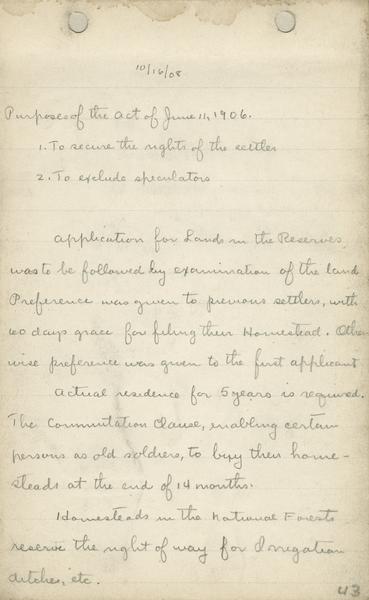 10/16/08
Purposes of the Act of June 11, 1906.
1. To secure the rights of the settler
2. To exclude speculators
Application for Lands in the Reserves,
was to be followed by examination of the land
Preference was given to previous settlers, with
60 days grace for filing their Homestead. Other
wise preference was given to the first applicant
Actual residence for 5 years is required.
The Commutation Clause, enabling certain
persons as old soldiers, to buy their home-
steads at the end of 14 months.
Homesteads in the National Forests
reserve the right of way for Irrigation
ditches, etc.
43